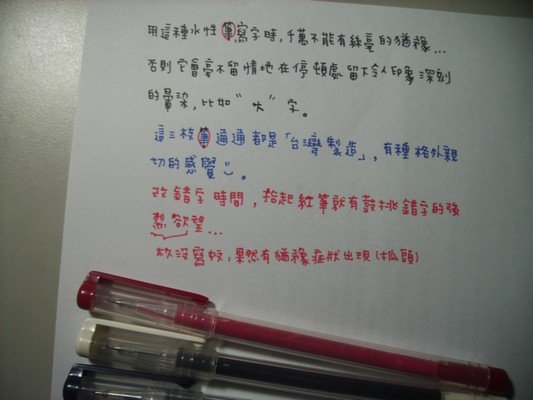 用這種水性筆寫字時,千萬不能有絲毫的猶豫...
否則它會毫不留情地在停頓處留下令人印象深刻
的暈染,比如"大"字。
這三枝筆通通都是「台灣製造」,有種格外親
切的感覺。
改錯字時間,拾起紅筆就有鼓挑錯字的強
烈慾望...
故沒寫較,果然有猶豫症狀出現(抓頭)